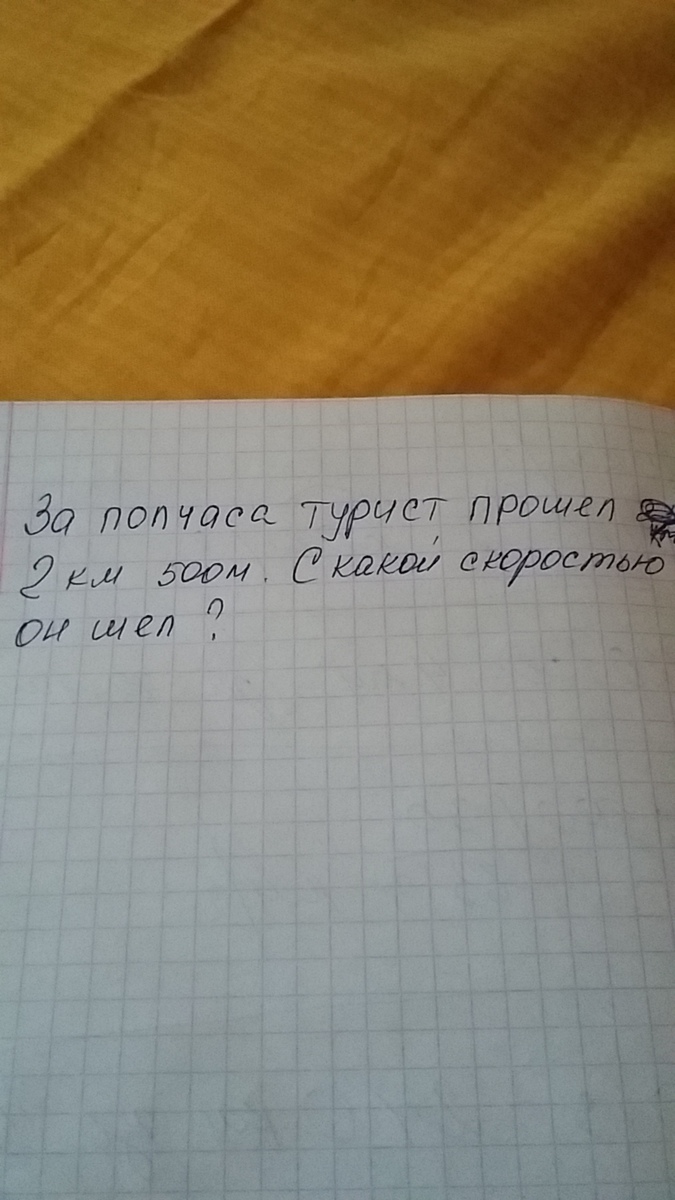 За полчаса турист прошел
2 км 500м. С какой скоростью
он шел ?